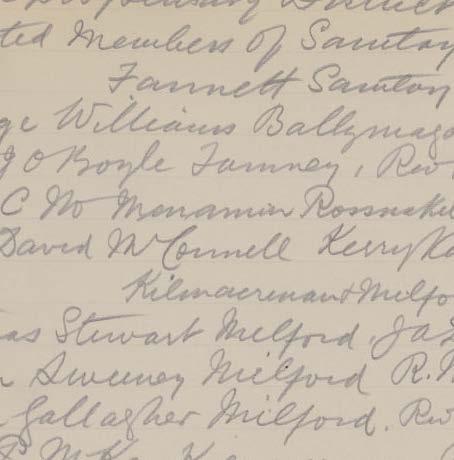 Dispensary District
ted Members of Sanitary
Fannett Sanitary
ge Williams Ballymag
g O Boyle Tamney, Rev
C Mc Menamin Rossnakil
David McConnell Kerryk
Kilmacrenan & Milfo
as Stewart Milford, Ja
n Sweeney Milford R.
Gallagher Milford. Rev